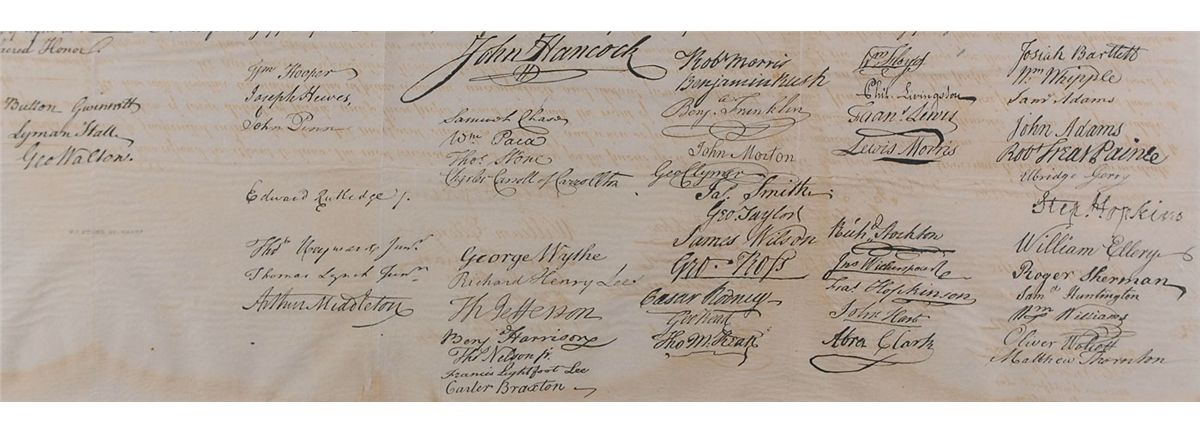 acred Honor.
Button Gwinnett
Lyman Hall
Geo Walton.
Wm Hooper
Joseph Hewes,
John Penn
Edward Rutledge /.
Thos Heyward Junr.
Thomas Lynch Junr.
Arthur Middleton
John Hancock
Samuel Chase
Wm Paca
Thos Stone
Charles Carroll of Carrollton
George Wythe
Richard Henry Lee
Th Jefferson
Benja Harrison
Thos Nelson jr.
Francis Lightfoot Lee
Carter Braxton
Robt Morris
Benjamin Rush
Benja Franklin
John Morton
Geo Clymer
Jas. Smith
Geo. Taylor
James Wilson
Geo. Ross
Caesar Rodney
Geo Read
Tho M:Kean
Phil. Livingston
Frans. Lewis
Lewis Morris
Richd Stockton
Jno Witherspoon
Fras Hopkinson
John Hart
Abra Clark
Josiah Bartlett
Wm Whipple
Saml Adams
John Adams
Robt Treat Paine
Elbridge Gerry
Step. Hopkins
William Ellery
Roger Sherman
Saml Huntington
Wm Williams
Oliver Wolcott
Matthew Thornton